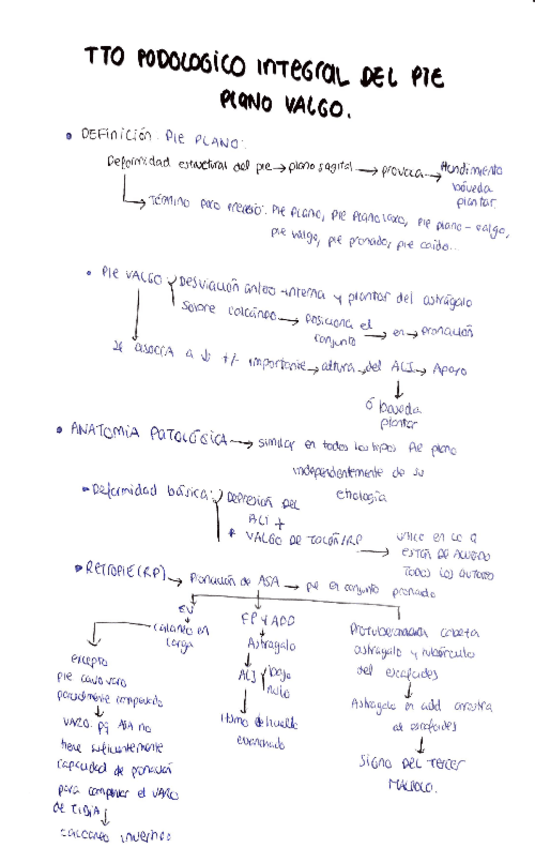 TTO PODOLOGICO INTEGRAL DEL PIE
PLANO VALGO.
• DEFINICIÓN: PIE PLANO:
Deformidad estructural del pie → plano sagital → provoca → Hundimiento
bóveda
plantar
→ Término poco preciso: Pie plano, pie plano laxo, pie plano-valgo,
pie valgo, pie pronado, pie caído...
• PIE VALGO Desviación antero-interna y plantar del astrágalo
sobre calcáneo → posiciona el → en → pronación
conjunto
se asocia a ↓ +/- importante → altura → del ALI → Apoyo
ó bóveda
plantar
• ANATOMIA PATOLÓGICA → similar en todos los tipos pie plano
independientemente de su
etiología
Deformidad básica: Depresión del
ALI +
+ VALGO DE TALÓN/RP → UNICO EN LO Q
ESTÁN DE ACUERDO
TODOS LOS AUTORES
• RETROPIE (RP) → Pronación de ASA → pie en conjunto pronado
EV
calcáneo en
carga
excepto
pie cavo varo
parcialmente compensado
VARO. pq ASA no
tiene suficientemente
capacidad de pronación
para compensar el VARO
DE TIBIA
calcáneo inverso
FP y ADD
Astrágalo
ALI bajo
nulo
Istmo de huella
ensanchado
Protuberancia cabeza
astrágalo y tubérculo
del escafoides
Astrágalo en add arrastra
al escafoides
SIGNO DEL TERCER
MALEOLO.